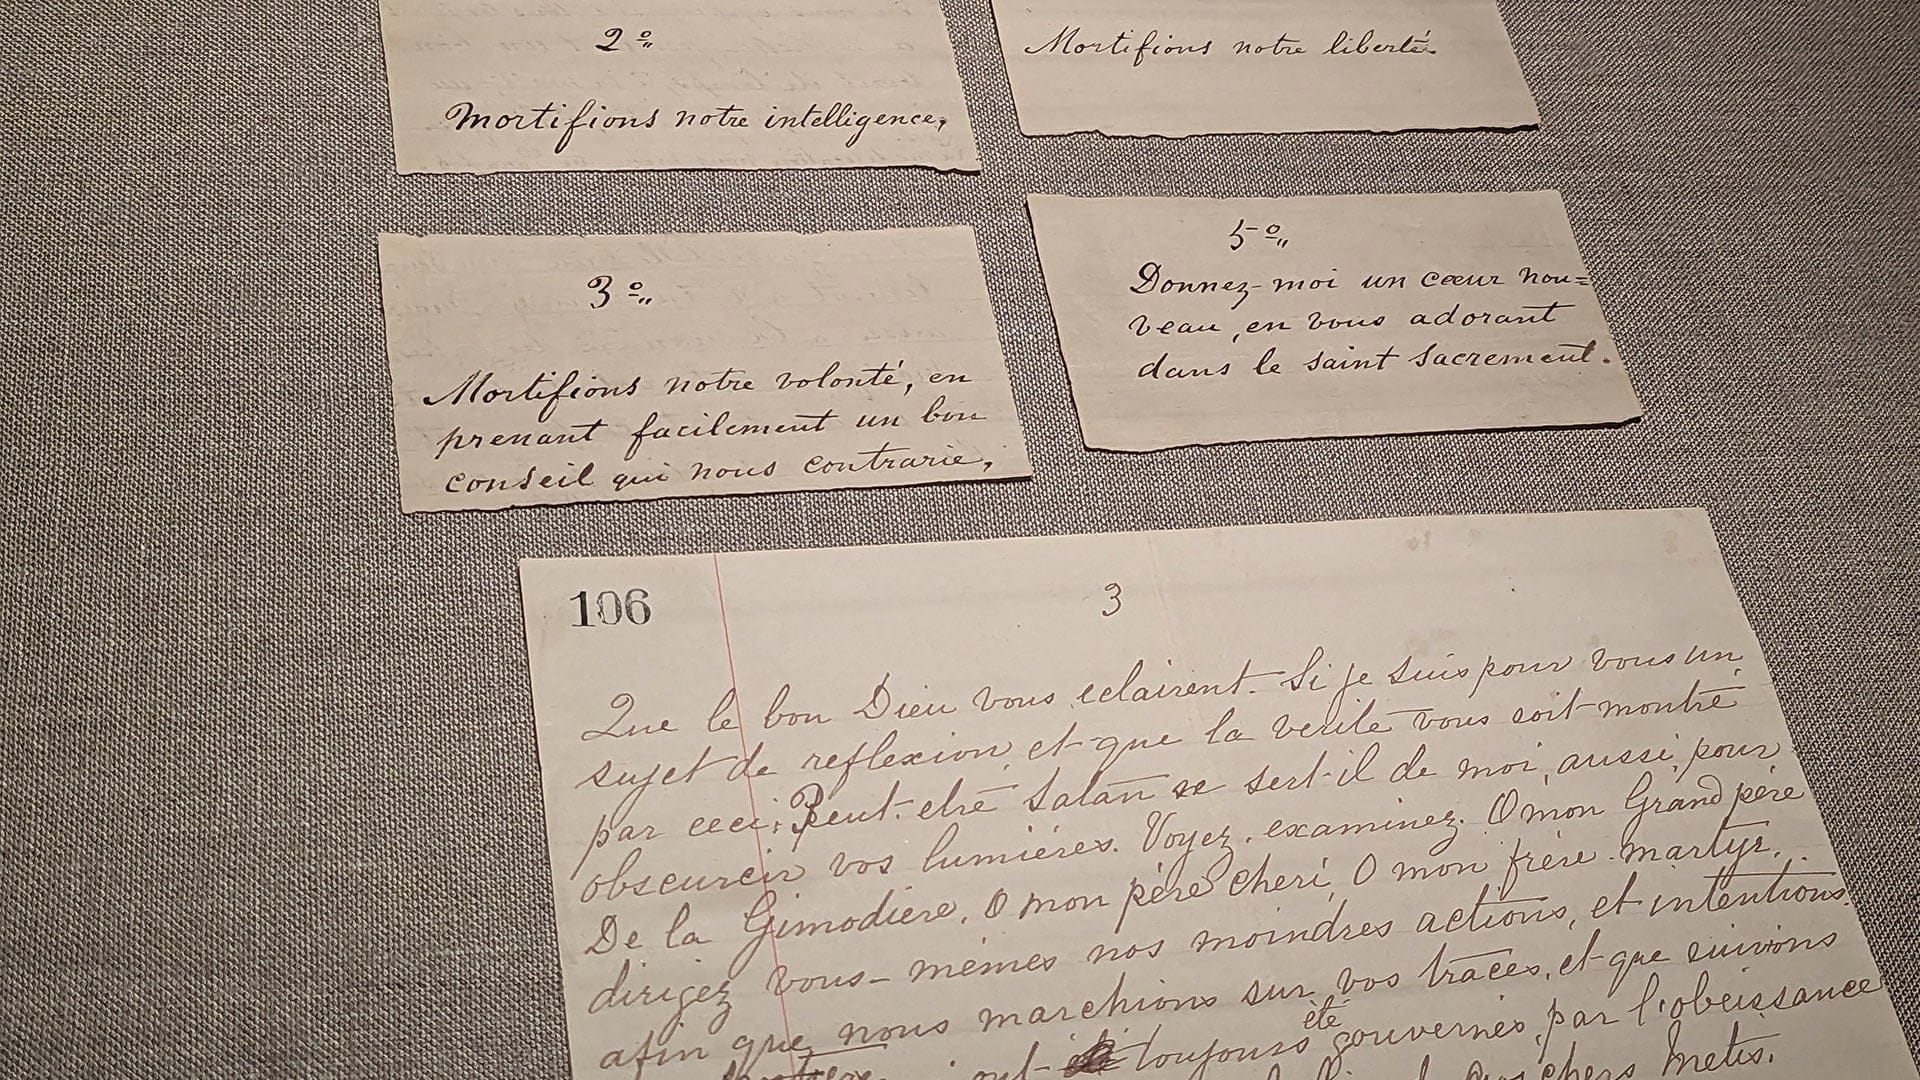 2º„
Mortifions notre intelligence,
Mortifions notre liberté.
3º„
Mortifions notre volonté, en
prenant facilement un bon
conseil qui nous contrarie,
5º„
Donnez-moi un cœur nou=
veau, en vous adorant
dans le saint Sacrement.
106
3
Que le bon Dieu vous eclairent. Si je suis pour vous un
sujet de reflexion, et que la verité vous soit montré
par ceci; Peut-etré Satan se sert-il de moi, aussi, pour
obscurcir vos lumiéres. Voyez, examinez. O mon Grand pére
De la Gimodiére, O mon pére cheri, O mon frére martyr,
dirigez vous-mémes nos moindres actions, et intentions,
afin que nous marchions sur vos traces, et que suivions
ont toujours été gouvernés, par l'obeissance
chers Metis.